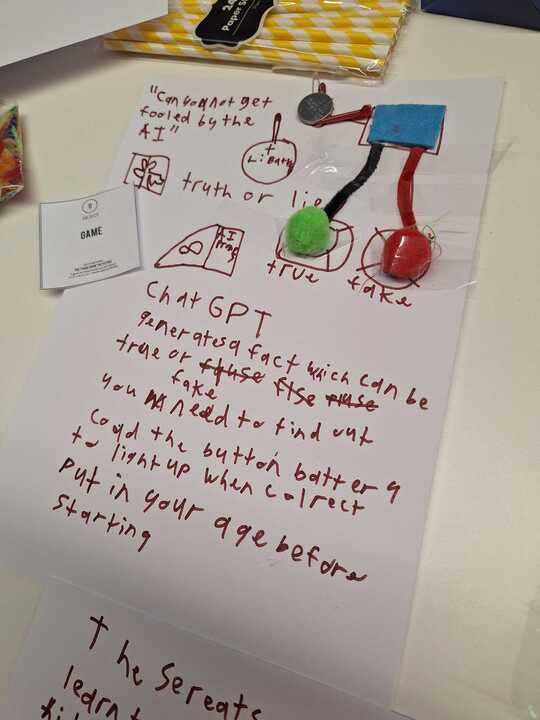 24
Paper S
"Can you not get
fooled by the
AI"
+
Li Batt
truth or lie
GAME
AI
true
fake
Chat GPT
generates a fact which can be
true or fquse flse fluse
fake
you need to find out
coad the button battery
to light up when colrect
put in your age before
starting
The sereats
learn t